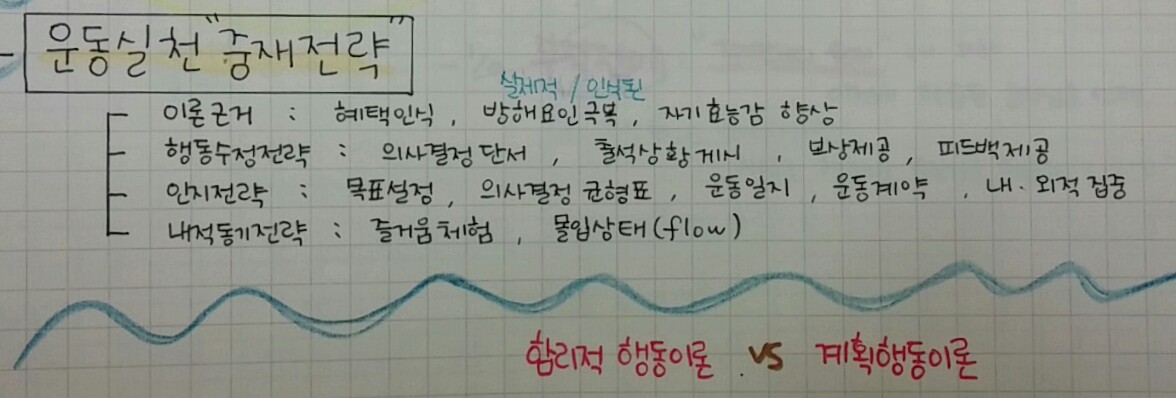 - 운동실천 "중재전략"
실제적 / 인식된
이론근거 : 혜택인식, 방해요인극복, 자기효능감 향상
행동수정전략 : 의사결정단서, 출석상황게시, 보상제공, 피드백제공
인지전략 : 목표설정, 의사결정 균형표, 운동일지, 운동계약, 내·외적 집중
내적동기전략 : 즐거움체험, 몰입상태(flow)
합리적 행동이론 vs 계획행동이론